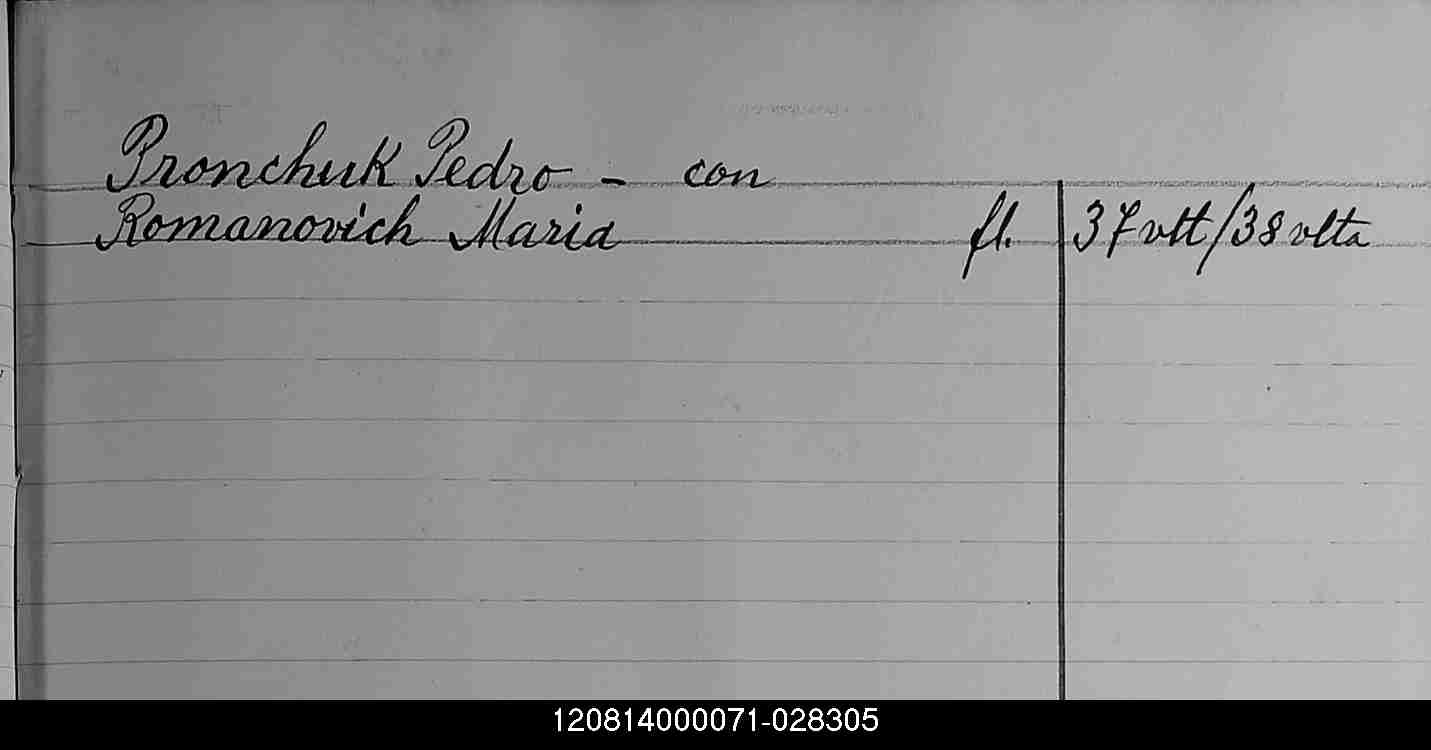 Pronchuk Pedro - con
Romanovich Maria fl. 37 vtt/38 vlta
120814000071-028305